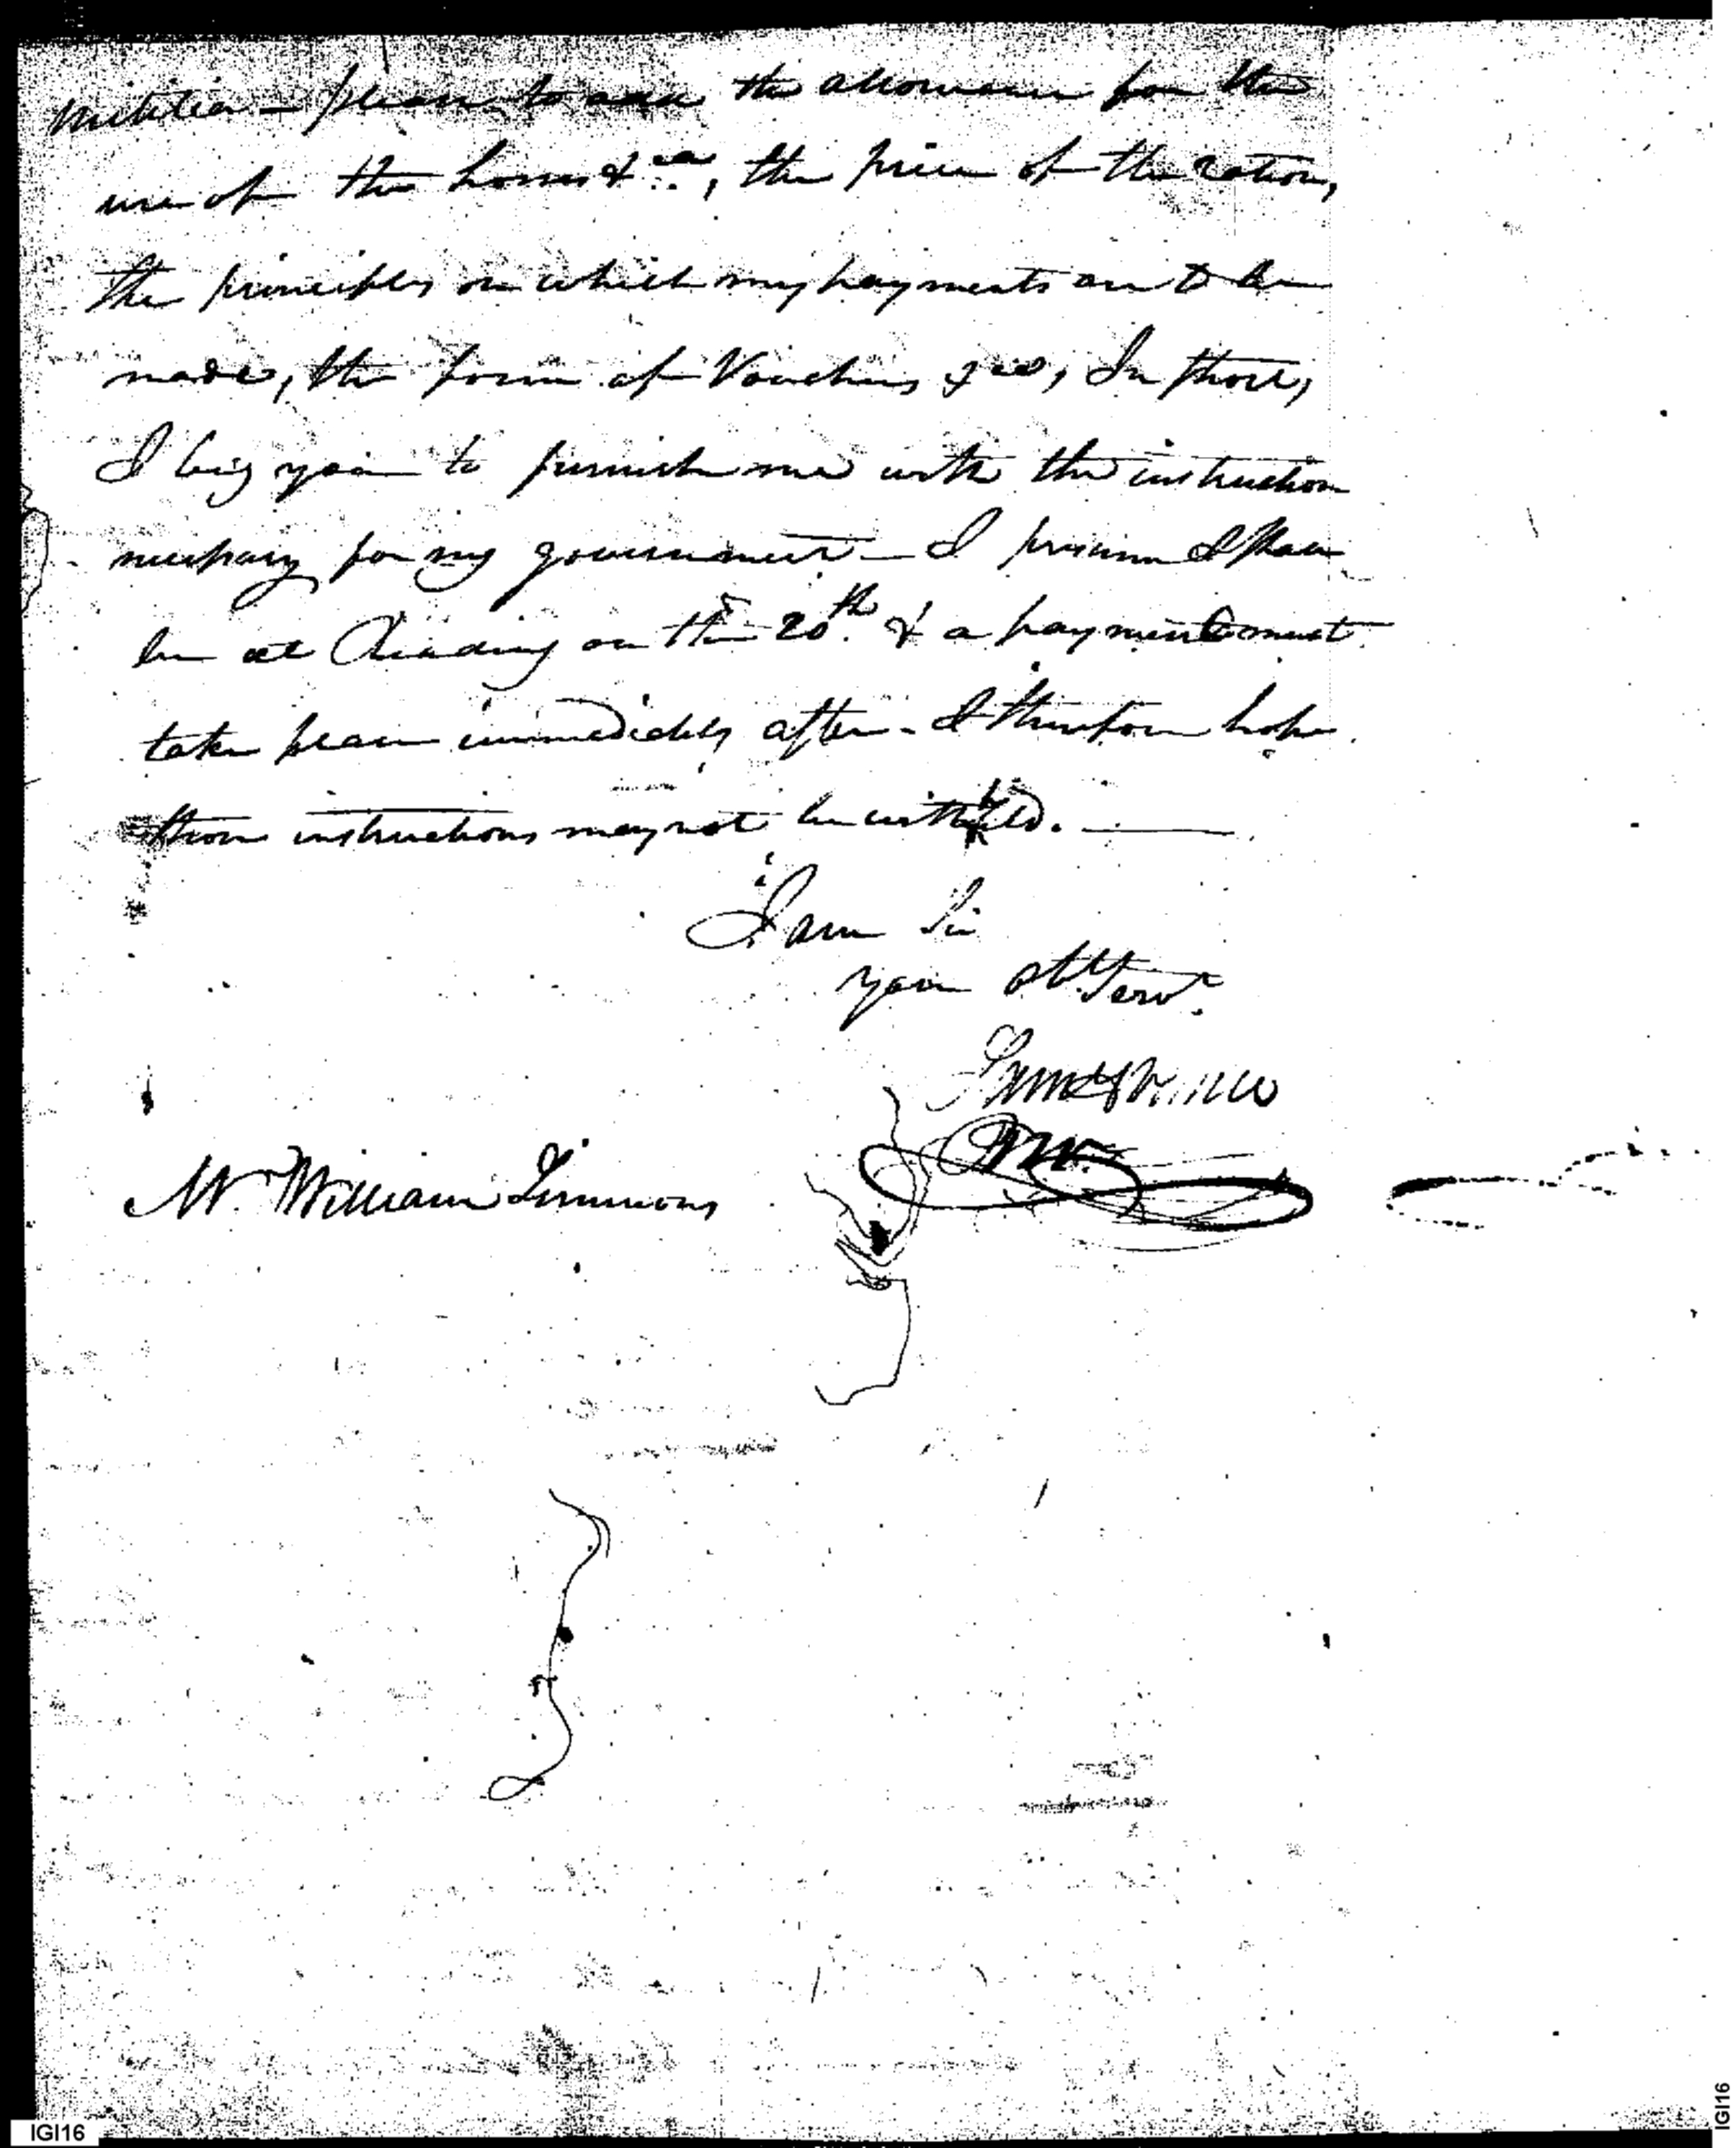 Militia – please to add the allowance for the
use of the horses &ca, the price of the ration,
the principles on which my payments are to be
made, the form of Vouchers &ca, In short,
I beg you to furnish me with the instruction
necessary for my government – I presume I shall
be at Reading on the 20th. & a payment must
take place immediately after – I therefore hope
those instructions may not be withheld.
I am Sir
your obt. Servt.
Mr. William Simmons
IGI16
IGI16